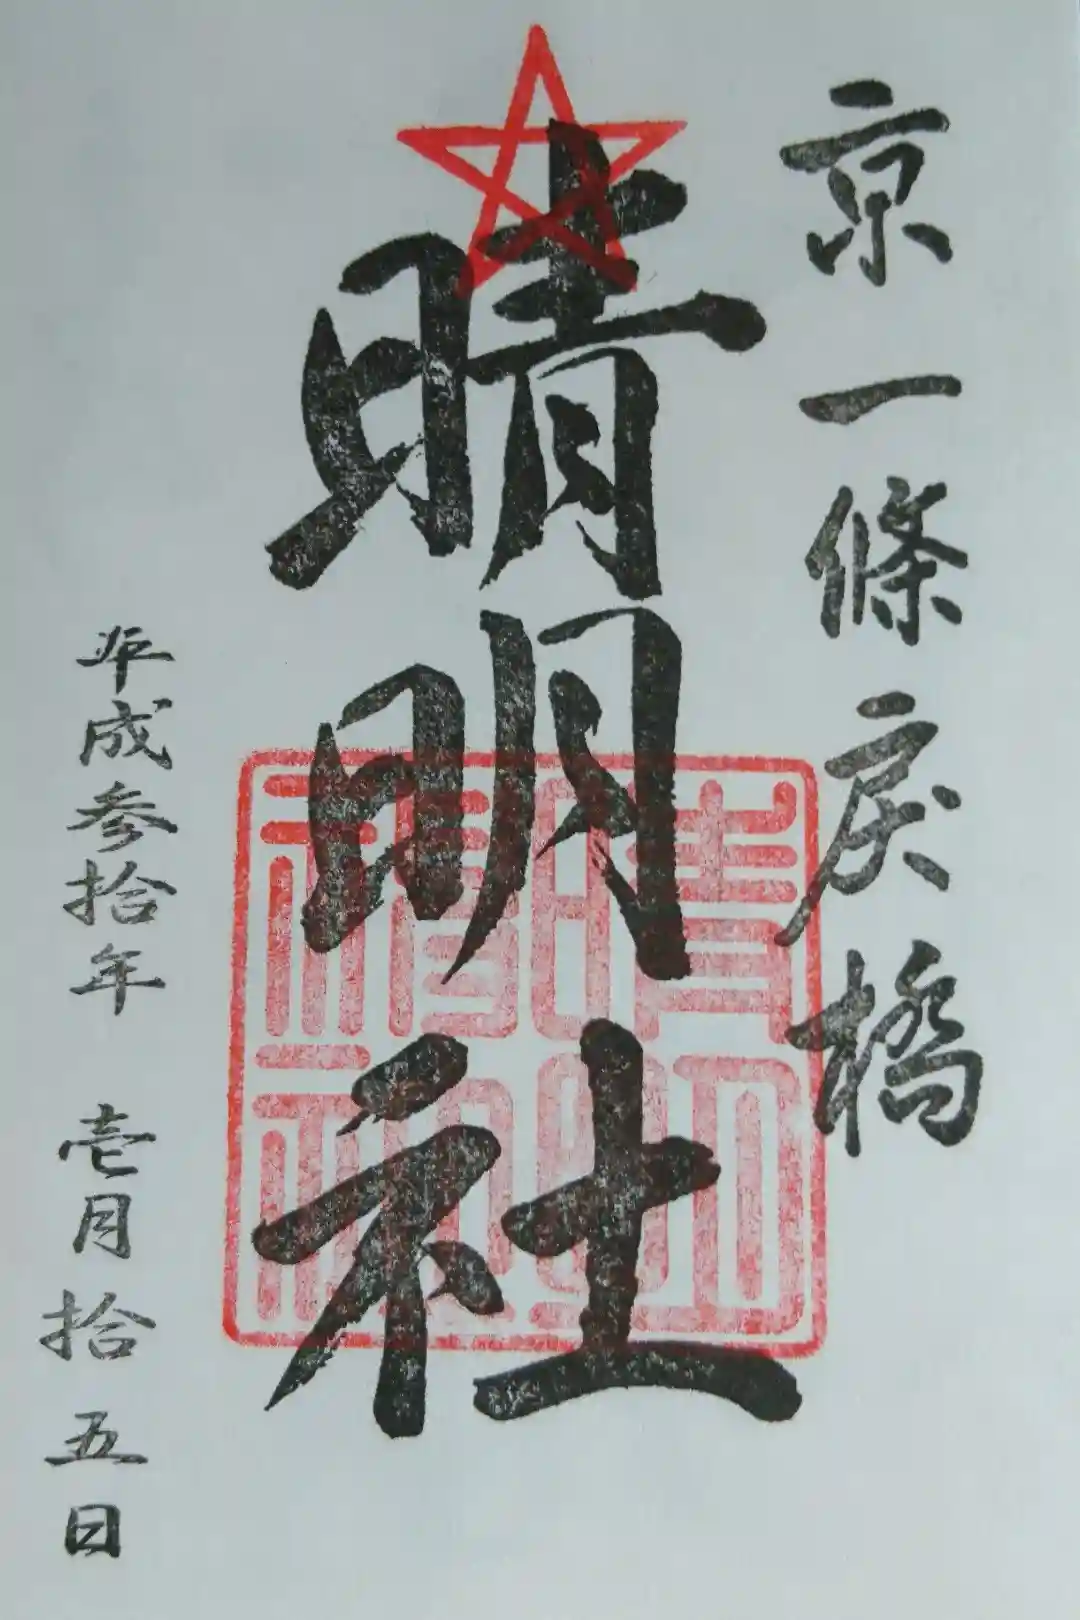 京一條戻橋
晴明社
晴明神社
平成参拾年 壱月拾五日